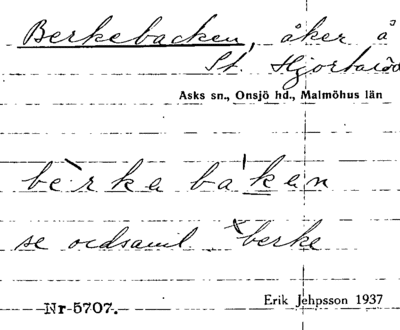 Berkebacken, åker å
St. Hjortaröd
Asks sn., Onsjö hd., Malmöhus län
bèrka bákan
se ordsaml. berke
Nr 5707.
Erik Jehpsson 1937